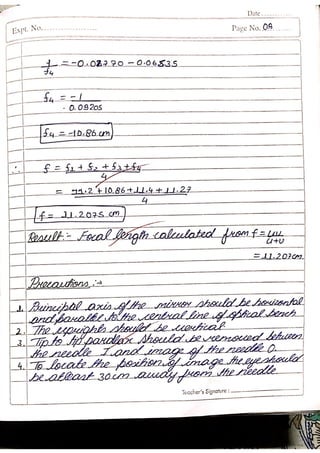 Date
Expt. No.
Page No. 09
1/f4 = -0.02770 - 0.06535
f4 = -1
0.09205
f4 = -10.86 cm
∴ f = f1 + f2 + f3 + f4
4
= 11.2 + 10.86 + 11.4 + 11.27
4
f = 11.2075 cm
Result:- Focal length calculated from f = uv
u+v
= 11.207cm.
Precautions :→
1. Principal axis of the mirror should be horizontal
and parallel to the central line of optical bench
2. The uprights should be vertical.
3. Tip to tip parallax should be removed between
the needle I and image of the needle O.
4. To locate the position of image the eye should
be atleast 30 cm away from the needle
Teacher's Signature :